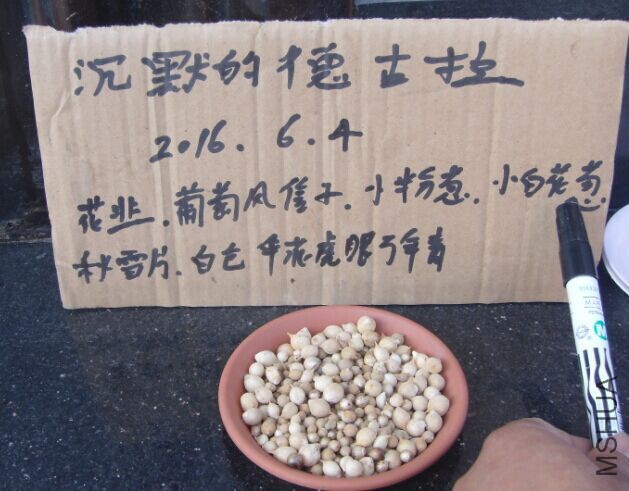 沉默的德古拉
2016.6.4
花韭.葡萄风信子.小粉葱.小白花葱.
秋雪片.白色 虎眼万年青
MSHUA